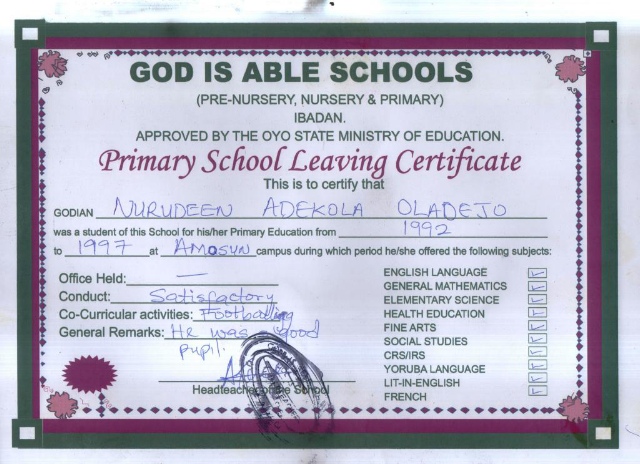 GOD IS ABLE SCHOOLS
(PRE-NURSERY, NURSERY & PRIMARY)
IBADAN.
APPROVED BY THE OYO STATE MINISTRY OF EDUCATION.
Primary School Leaving Certificate
This is to certify that
GODIAN NURUDEEN ADEKOLA OLADEJO
was a student of this School for his/her Primary Education from 1992
to 1997 at AMOSUN campus during which period he/she offered the following subjects:
Office Held: —
Conduct: Satisfactory
Co-Curricular activities: Footballing
General Remarks: He was a good
pupil.
Headteacher of the School
ENGLISH LANGUAGE
GENERAL MATHEMATICS
ELEMENTARY SCIENCE
HEALTH EDUCATION
FINE ARTS
SOCIAL STUDIES
CRS/IRS
YORUBA LANGUAGE
LIT-IN-ENGLISH
FRENCH